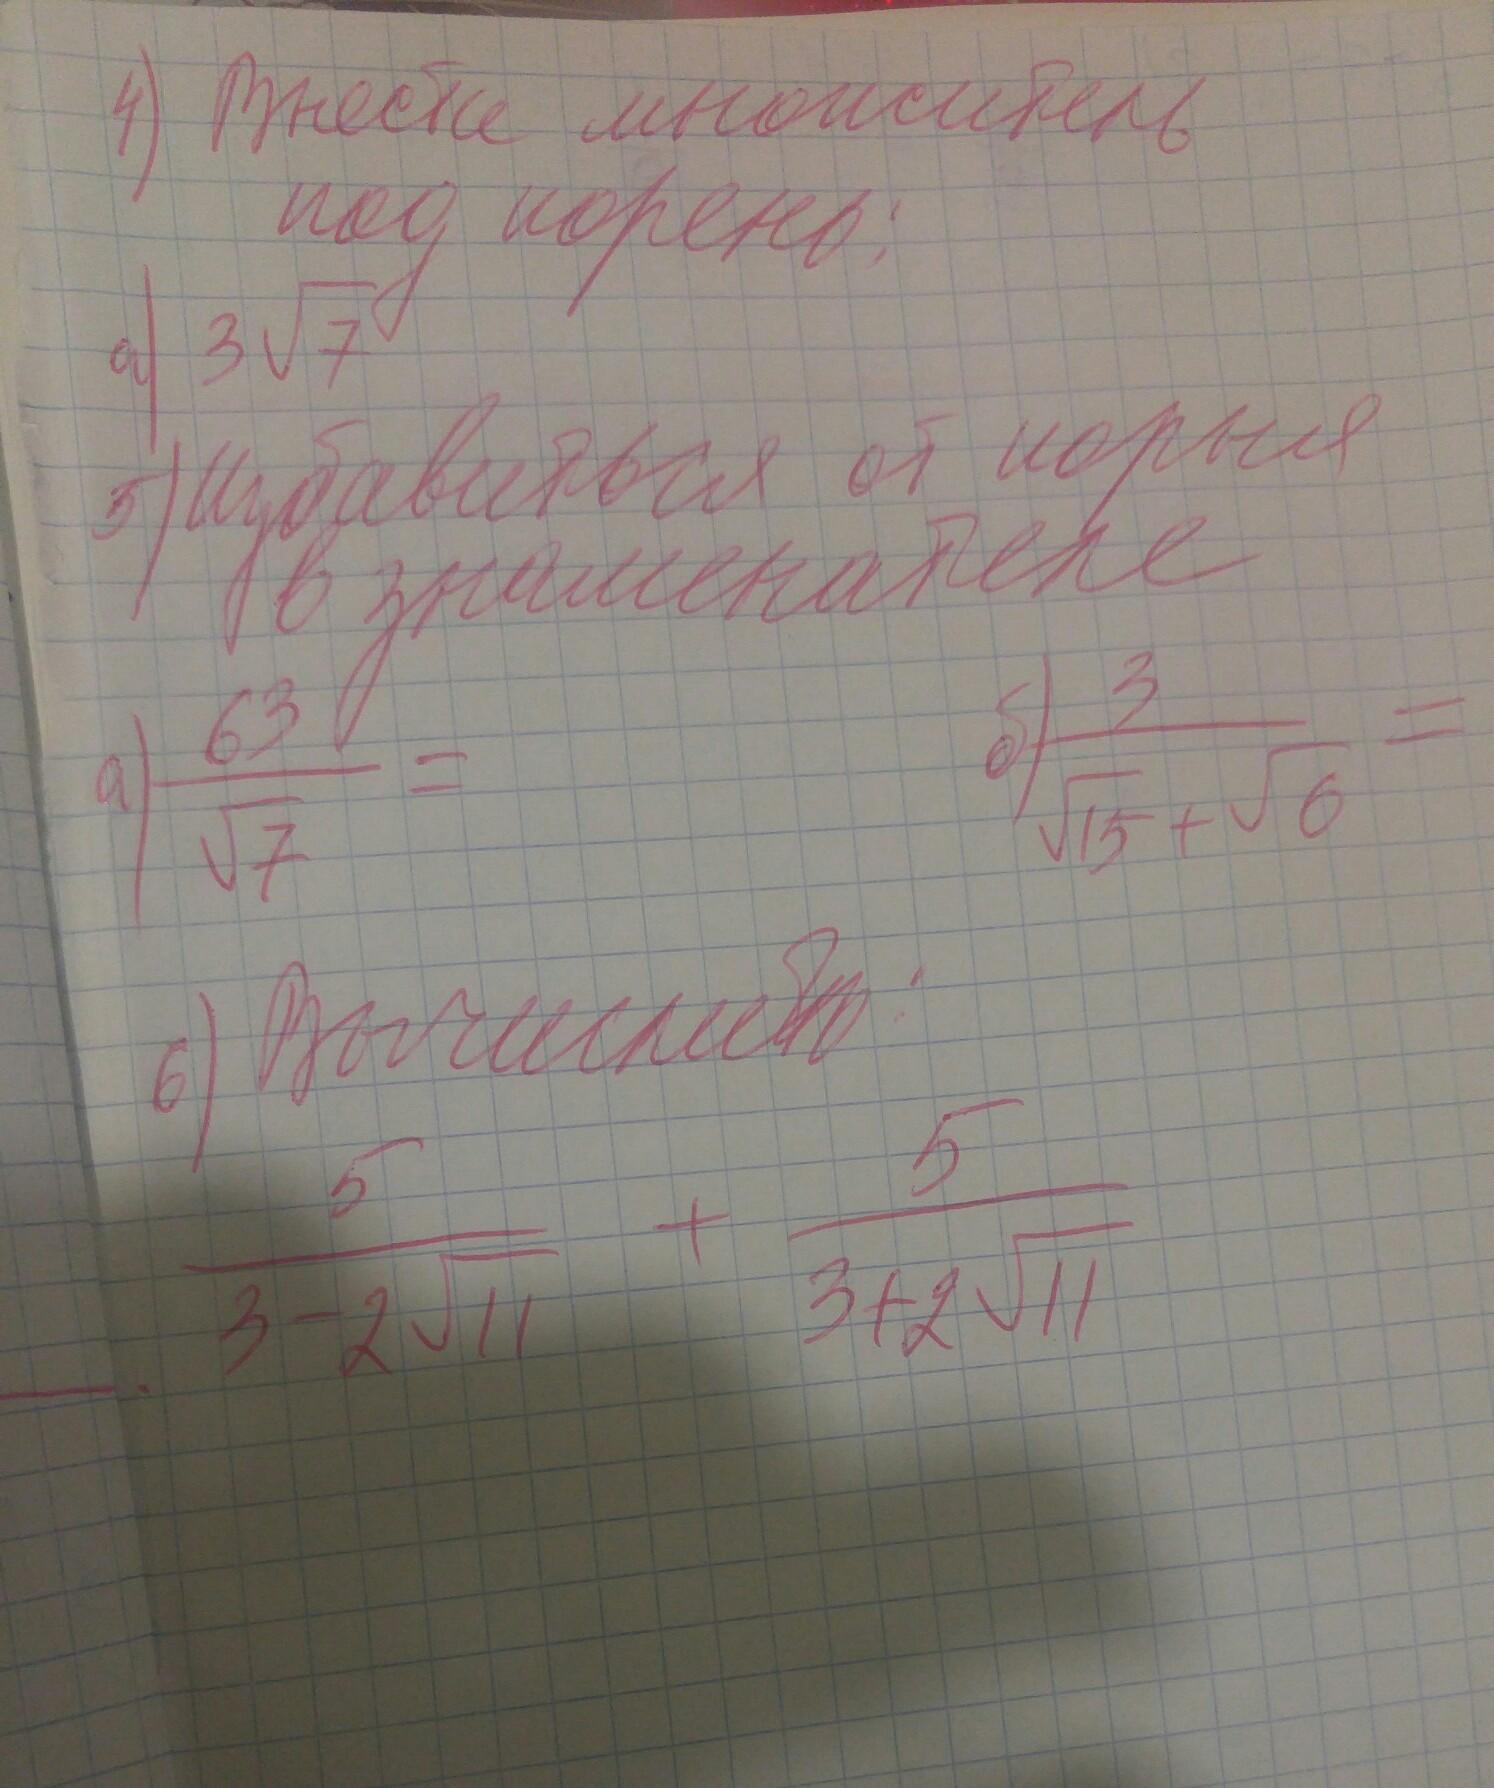 4) Внести множитель
под корень:
а) 3√7
5) Избавиться от корня
в знаменателе
а) 63/√7 = б) 3/(√15 + √6) =
6) Вычислить:
5/(3-2√11) + 5/(3+2√11)